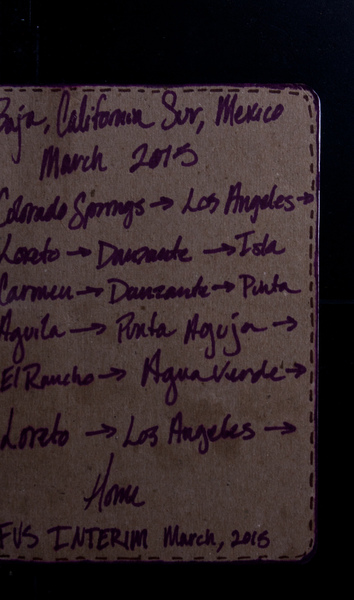 Baja, California Sur, Mexico
March 2015
Colorado Springs → Los Angeles →
Loreto → Danzante → Isla
Carmen → Danzante → Punta
Aguila → Punta Aguja →
El Rancho → Agua Verde →
Loreto → Los Angeles →
Home
FVS INTERIM March, 2015